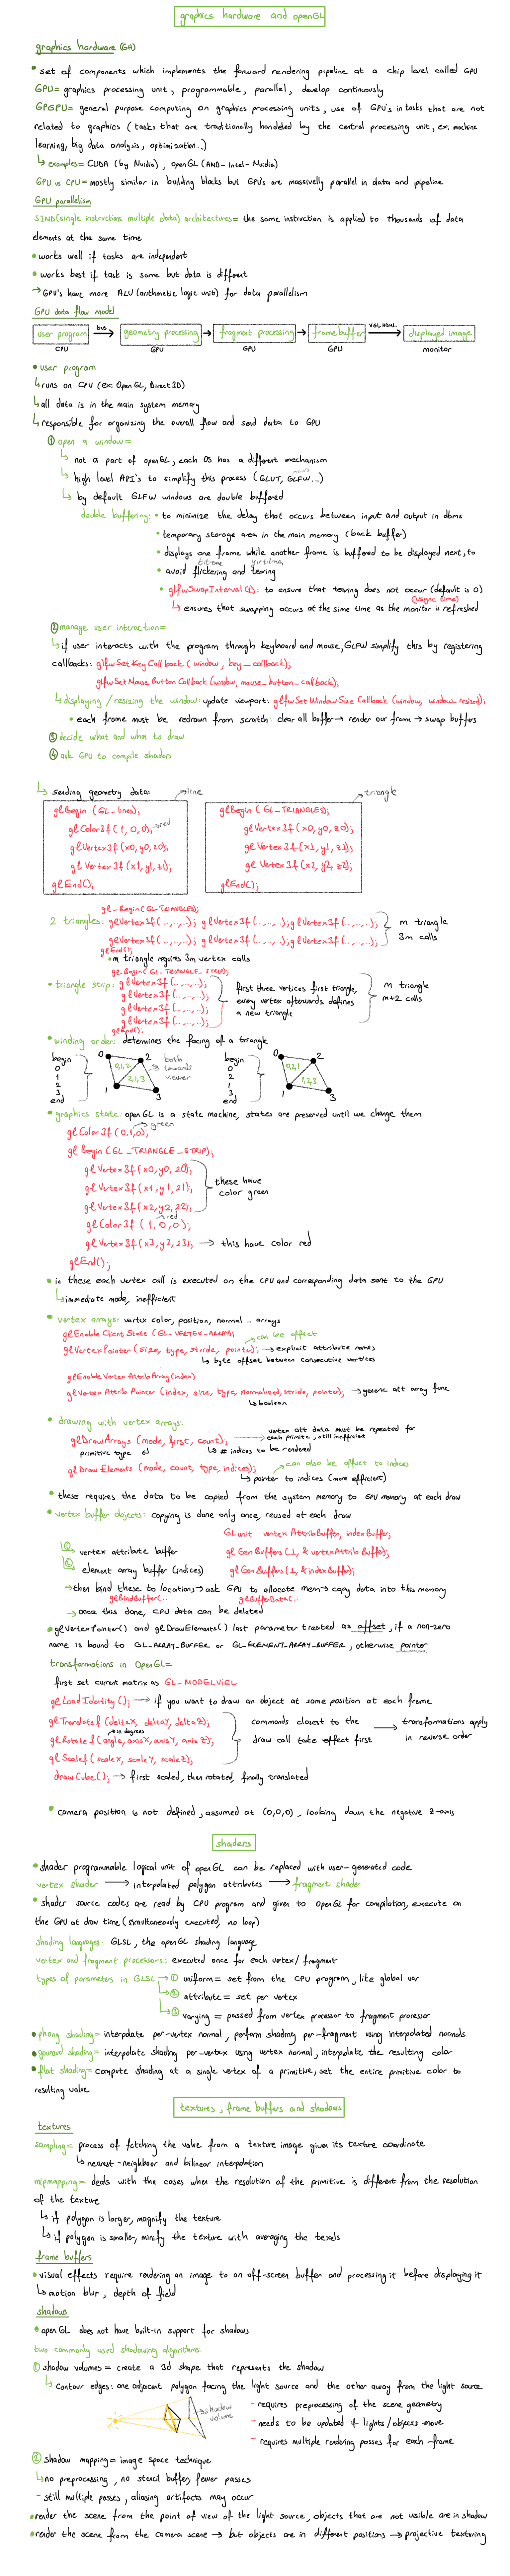 graphics hardware and openGL
graphics hardware (GH)
• set of components which implements the forward rendering pipeline at a chip level called GPU
GPU= graphics processing unit, programmable, parallel, develop continuously
GPGPU= general purpose computing on graphics processing units, use of GPU's in tasks that are not
related to graphics (tasks that are traditionally handeled by the central processing unit, ex: machine
learning, big data analysis, optimization..)
↳ examples= CUDA (by Nvidia), openGL (AMD-Intel-Nvidia)
GPU vs CPU= mostly similar in building blocks but GPU's are massivelly parallel in data and pipeline
GPU parallelism
SIMD(single instruction multiple data) architectures= the same instruction is applied to thousands of data
elements at the same time
• works well if tasks are independent
• works best if task is same but data is different
→ GPU's have more ALU (arithmetic logic unit) for data parallelism
GPU data flow model
user program bus → geometry processing → fragment processing → framebuffer VGA, HDMI.. → displayed image
CPU GPU GPU GPU monitor
• user program
↳ runs on CPU (ex: Open GL, Direct 3D)
↳ all data is in the main system memory
↳ responsible for organizing the overall flow and send data to GPU
① open a window=
↳ not a part of openGL, each OS has a different mechanism
↳ high level API's to simplify this process (GLUT, GLFW...)
↳ by default GLFW windows are double buffered
double buffering: • to minimize the delay that occurs between input and output in dbms
• temporary storage area in the main memory (back buffer)
• displays one frame while another frame is buffered to be displayed next, to
• avoid flickering and tearing
• glfwSwapInterval(1): to ensure that tearing does not occur (default is 0)
(vsync time)
↳ ensures that swapping occurs at the same time as the monitor is refreshed
② manage user interaction=
↳ if user interacts with the program through keyboard and mouse, GLFW simplify this by registering
callbacks: glfwSetKeyCallback (window, key_callback);
glfwSetMouseButtonCallback (window, mouse_button_callback);
↳ displaying / resizing the window: update viewport: glfwSetWindowSizeCallback (window, window_resized);
• each frame must be redrawn from scratch: clear all buffer → render our frame → swap buffers
③ decide what and when to draw
④ ask GPU to compile shaders
↳ sending geometry data: line triangle
glBegin (GL_lines); glBegin (GL_TRIANGLES);
glColor3f (1, 0, 0); → red glVertex3f (x0, y0, z0);
glVertex3f (x0, y0, z0); glVertex3f (x1, y1, z1);
glVertex3f (x1, y1, z1); glVertex3f (x2, y2, z2);
glEnd(); glEnd();
gl_Begin(GL-TRIANGLES);
2 triangles: glVertex3f (.., .., ..); glVertex3f (.., .., ..); glVertex3f (.., .., ..); m triangle
glVertex3f (.., .., ..); glVertex3f (.., .., ..); glVertex3f (.., .., ..); 3m calls
glEnd();
• m triangle requires 3m vertex calls
gl.Begin (GL_TRIANGLE_STRIP);
• triangle strip: glVertex3f (.., .., ..); first three vertices first triangle, m triangle
glVertex3f (.., .., ..); every vertex afterwards defines m+2 calls
glVertex3f (.., .., ..); a new triangle
glVertex3f (.., .., ..);
glEnd();
• winding order: determines the facing of a triangle
begin 0 1 2 3 end
0 2 1 3 0,1,2 2,1,3 both towards viewer
begin 0 2 1 3 0,2,1 1,2,3
0
1
2
3
end
• graphics state: open GL is a state machine, states are preserved until we change them
glColor3f (0,1,0); → green
glBegin (GL_TRIANGLE_STRIP);
glVertex3f (x0, y0, z0);
glVertex3f (x1, y1, z1); these have color green
glVertex3f (x2, y2, z2);
glColor3f (1, 0, 0); red
glVertex3f (x3, y3, z3); → this have color red
glEnd();
• in these each vertex call is executed on the CPU and corresponding data sent to the GPU
↳ immediate mode, inefficient
• vertex arrays: vertex color, position, normal .. arrays
glEnable Client State (GL_VERTEX_ARRAY); can be offset
glVertexPointer (size, type, stride, pointer); → explicit attribute names
↳ byte offset between consecutive vertices
glEnable Vertex AttribArray (index)
glVertex Attrib Pointer (index, size, type, normalized, stride, pointer); → generic att array func
↳ boolean
• drawing with vertex arrays:
glDrawArrays (mode, first, count); → vertex att data must be repeated for each primitive, still inefficient
primitive type ↲ ↳ # indices to be rendered
glDrawElements (mode, count, type, indices); can also be offset to indices
↳ pointer to indices (more efficient)
• these requires the data to be copied from the system memory to GPU memory at each draw
• vertex buffer objects: copying is done only once, reused at each draw
GLuint vertexAttribBuffer, indexBuffer;
① vertex attribute buffer glGenBuffers (1, & vertexAttribBuffer);
② element array buffer (indices) glGenBuffers (1, & indexBuffer);
→ then bind these to locations → ask GPU to allocate mem → copy data into this memory
glBindBuffer(.. glBufferData(..
→ once this done, CPU data can be deleted
• glVertexPointer() and glDrawElements() last parameter treated as offset, if a non-zero
name is bound to GL_ARRAY_BUFFER or GL_ELEMENT_ARRAY_BUFFER, otherwise pointer
transformations in OpenGL=
first set current matrix as GL-MODELVIEW
glLoadIdentity (); → if you want to draw an object at same position at each frame
glTranslatef (deltaX, deltaY, deltaZ);
in degrees
glRotatef (angle, axisX, axisY, axisZ); commands closest to the draw call take effect first → transformations apply in reverse order
glScalef (scaleX, scaleY, scaleZ);
drawCube(); → first scaled, then rotated, finally translated
• camera position is not defined, assumed at (0,0,0), looking down the negative z-axis
shaders
• shader programmable logical unit of openGL can be replaced with user-generated code
vertex shader → interpolated polygon attributes → fragment shader
• shader source codes are read by CPU program and given to OpenGL for compilation, execute on
the GPU at draw time (simultaneously executed, no loop)
shading languages: GLSL, the openGL shading language
vertex and fragment processors: executed once for each vertex/fragment
types of parameters in GLSL → ① uniform= set from the CPU program, like global var
↳ ② attribute= set per vertex
↳ ③ varying = passed from vertex processor to fragment processor
• phong shading= interpolate per-vertex normal, perform shading per-fragment using interpolated normals
• gouraud shading= interpolate shading per-vertex using vertex normal, interpolate the resulting color
• flat shading= compute shading at a single vertex of a primitive, set the entire primitive color to
resulting value
textures, frame buffers and shadows
textures
sampling= process of fetching the value from a texture image given its texture coordinate
↳ nearest-neighbour and bilinear interpolation
mipmapping= deals with the cases when the resolution of the primitive is different from the resolution
of the texture
↳ if polygon is larger, magnify the texture
↳ if polygon is smaller, minify the texture with averaging the texels
frame buffers
• visual effects require rendering an image to an off-screen buffer and processing it before displaying it
↳ motion blur, depth of field
shadows
• openGL does not have built-in support for shadows
two commonly used shadowing algorithms:
① shadow volumes = create a 3d shape that represents the shadow
↳ contour edges: one adjacent polygon facing the light source and the other away from the light source
shadow volume
- requires preprocessing of the scene geometry
- needs to be updated if lights/objects move
- requires multiple rendering passes for each frame
② shadow mapping= image space technique
↳ no preprocessing, no stencil buffer, fewer passes
- still multiple passes, aliasing artifacts may occur
• render the scene from the point of view of the light source, objects that are not visible are in shadow
• render the scene from the camera scene → but objects are in different positions → projective texturing